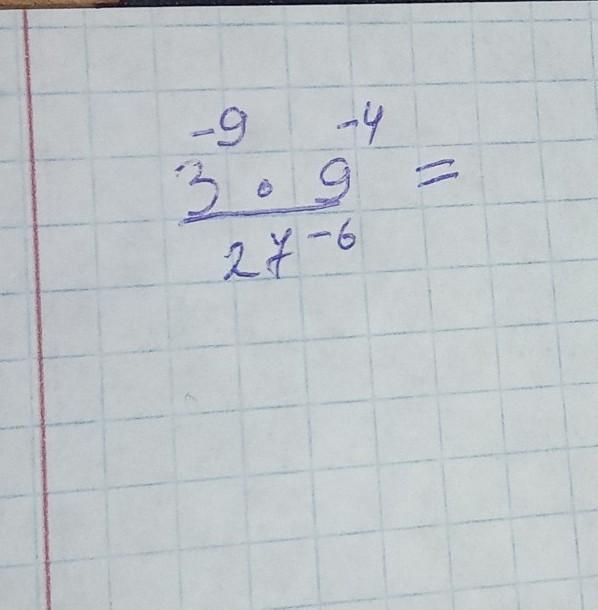 3⁻⁹ · 9⁻⁴ =
27⁻⁶